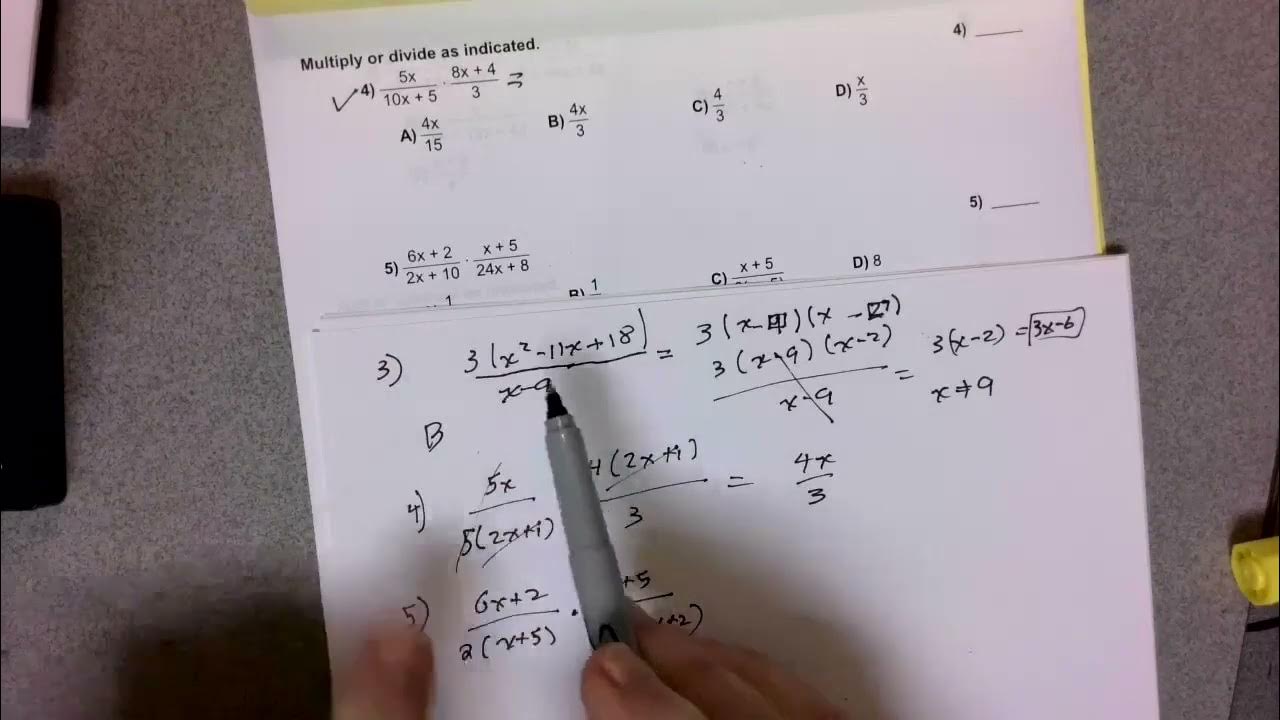 Multiply or divide as indicated.
4) ____
4) 5x/(10x + 5) · (8x + 4)/3 =
A) 4x/15 B) 4x/3 C) 4/3 D) x/3
5) ____
5) (6x + 2)/(2x + 10) · (x + 5)/(24x + 8)
1 B) 1 C) x + 5 D) 8
3) 3(x² - 11x + 18)/(x-9) = 3(x-9)(x-2)/(x-9) = 3(x-2) = 3x-6
x ≠ 9
B
4) 5x/5(2x+1) 4(2x+1)/3 = 4x/3
5) (6x+2)/2(x+5) · +5/+2)